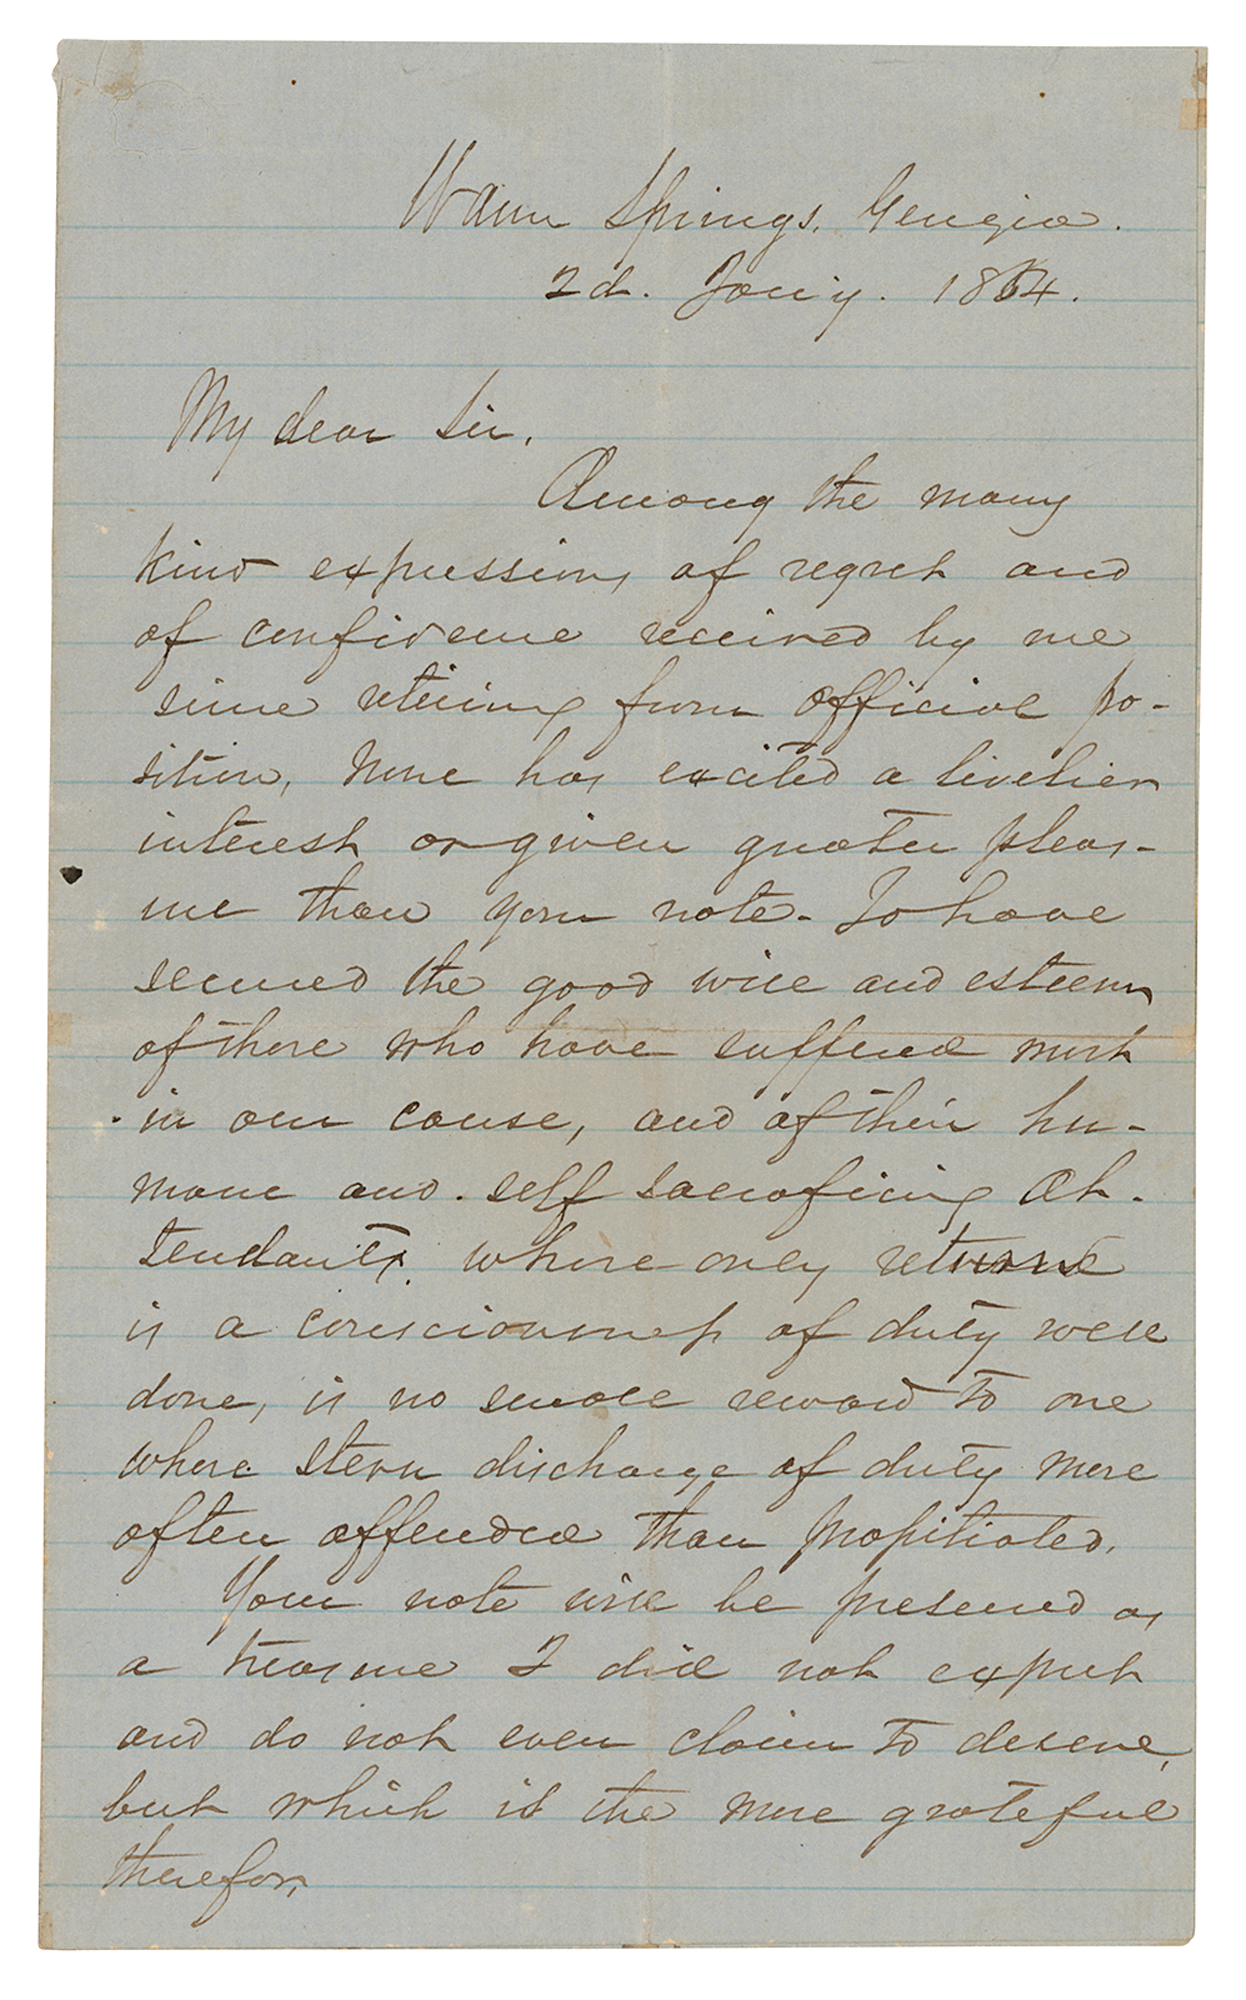 Warm Springs, Georgia.
2d. Jan'y. 1864.
My dear Sir,
Among the many
kind expressions of regret and
of confidence received by me
since retiring from official po-
sition, none has excited a livelier
interest or given greater pleas-
ure than your note. To have
secured the good will and esteem
of those who have suffered most
in our cause, and of their hu-
mane and self sacrificing at-
tendants whose only return
is a consciousness of duty well
done, is no small reward to one
whose stern discharge of duty more
often offended than propitiated.
Your note will be preserved as
a treasure I did not expect
and do not even claim to deserve,
but which is the more grateful
therefor,